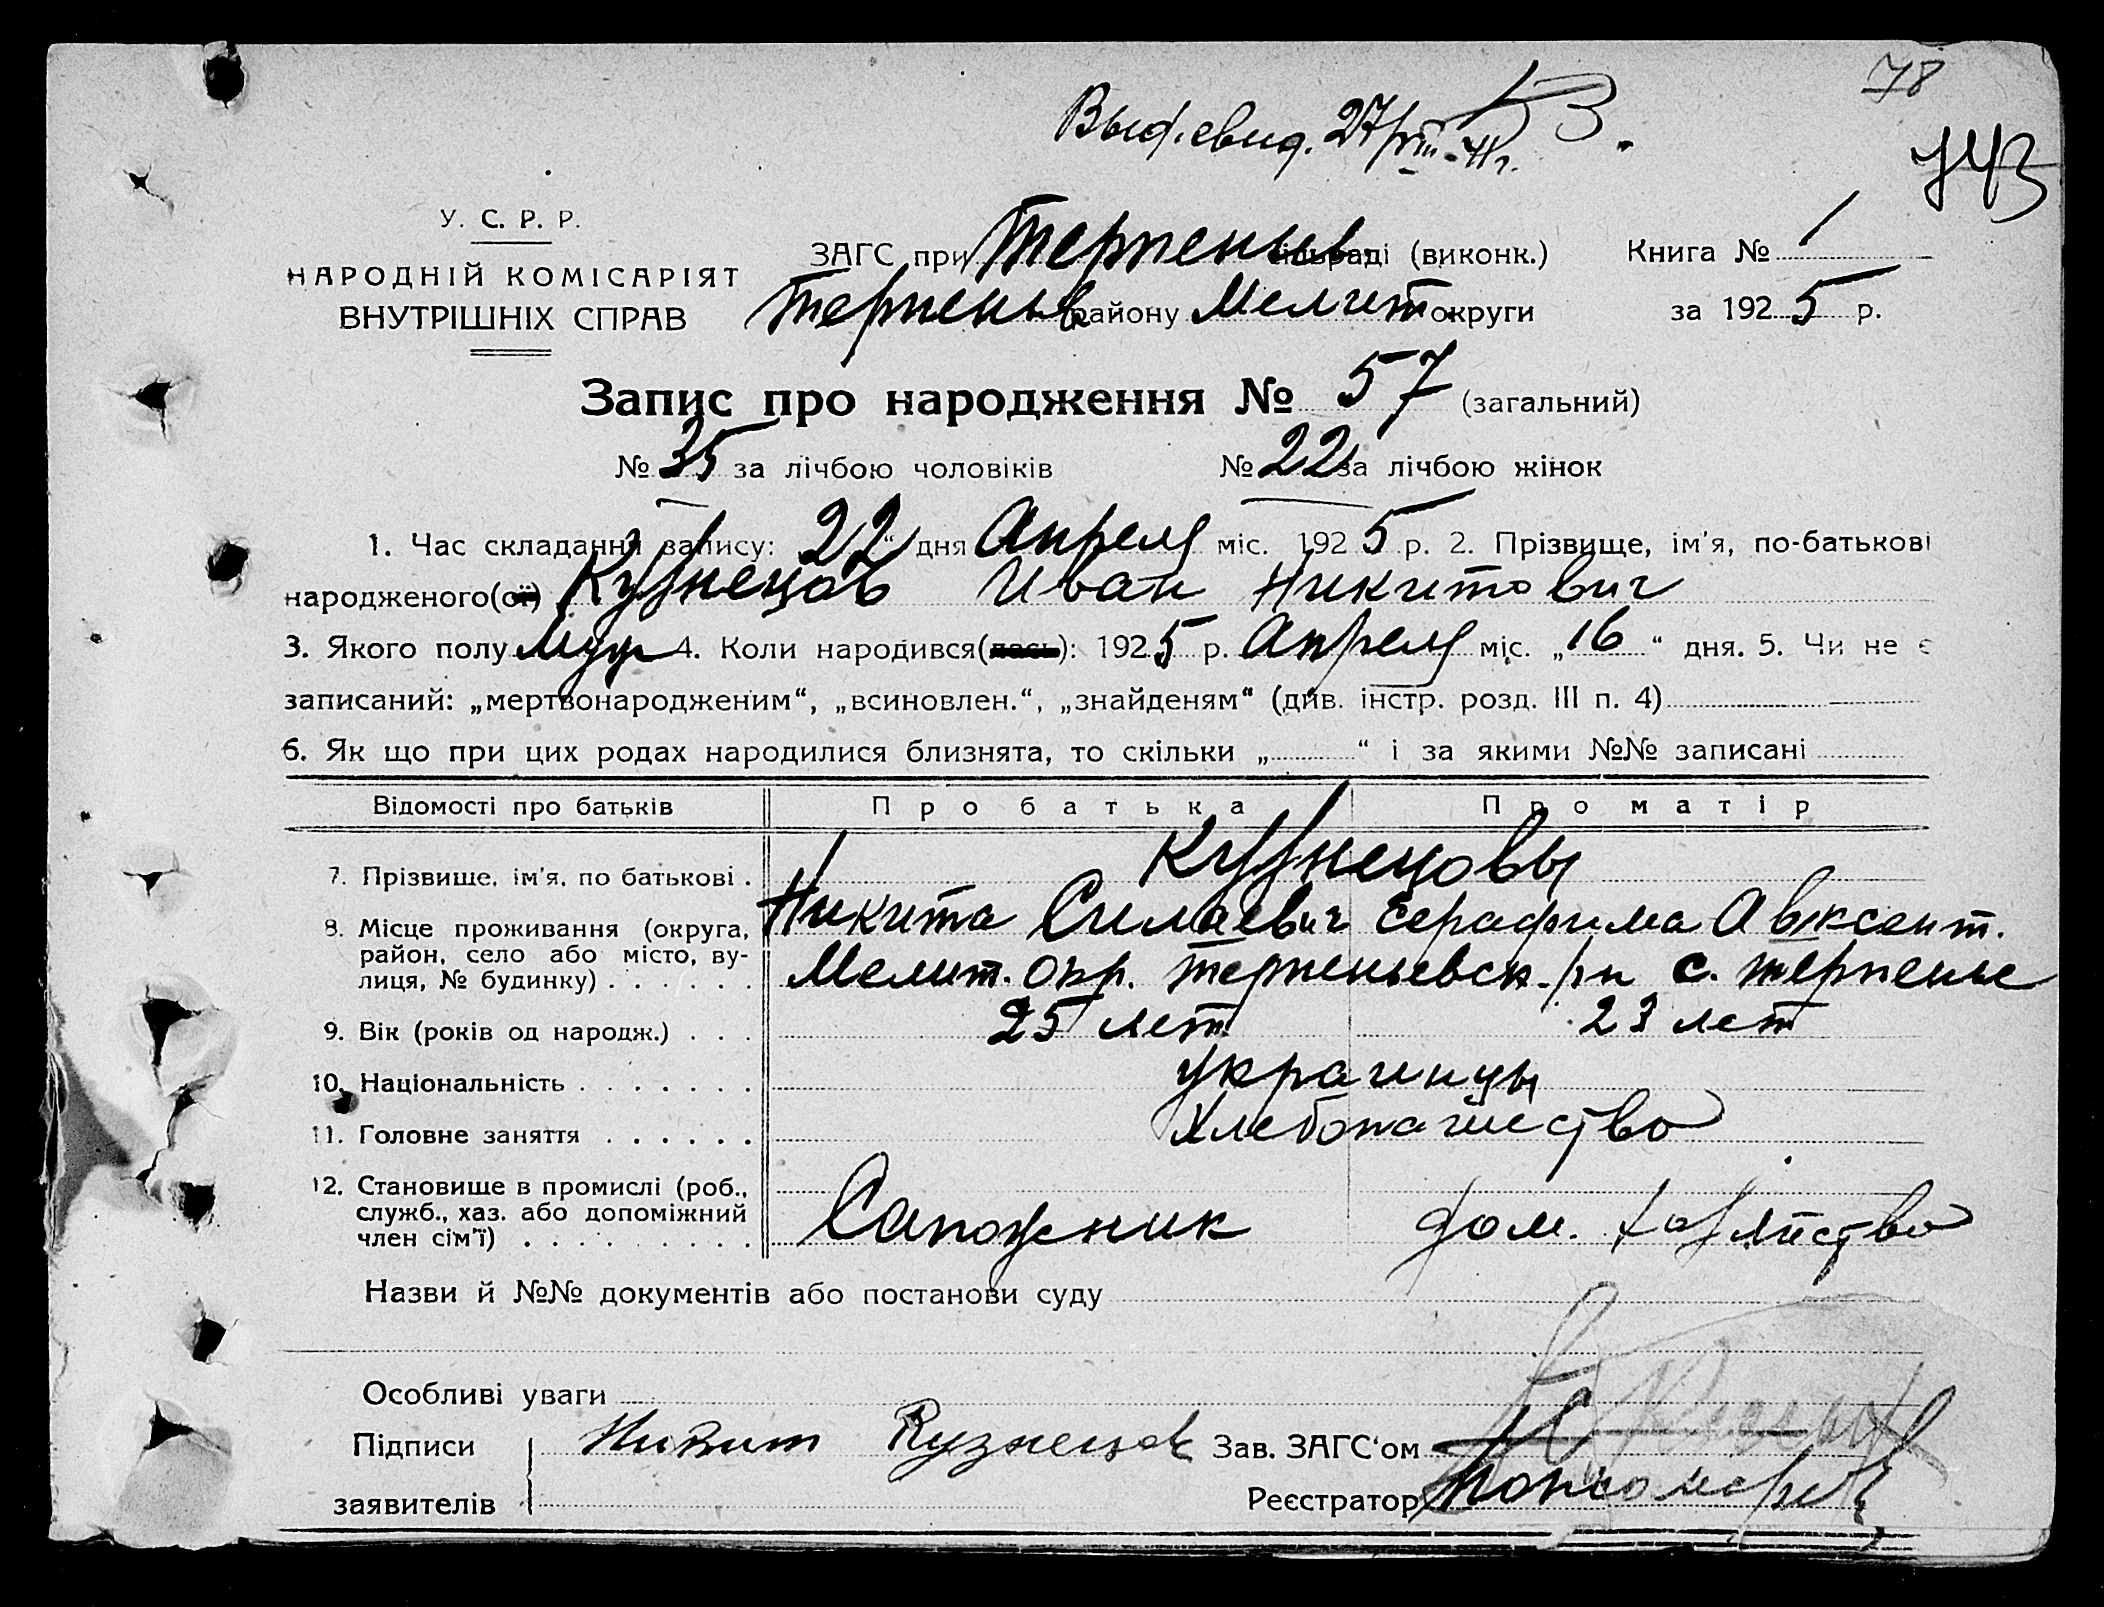 78
Выд. свид. 27/VIII-41г. 53.
743
У. С. Р. Р.
НАРОДНІЙ КОМІСАРІЯТ
ВНУТРІШНІХ СПРАВ
ЗАГС при Терпеньев. сільраді (виконк.) Книга № 1
Терпеньев району Мелит округи за 1925 р.
Запис про народження № 57 (загальний)
№ 35 за лічбою чоловіків № 22 за лічбою жінок
1. Час складання запису: „22“ дня Апреля міс. 1925 р. 2. Прізвище, ім'я, по-батькові
народженого(ої) Кузнецов Иван Никитович
3. Якого полу Муж 4. Коли народився(лась): 1925 р. Апреля міс. „16“ дня. 5. Чи не є
записаний: „мертвонародженим“, „всиновлен.“, „знайденям“ (див. інстр. розд. III п. 4)
6. Як що при цих родах народилися близнята, то скільки „ “ і за якими №№ записані
Відомості про батьків Про батька Про матір
7. Прізвище, ім'я, по батькові . Кузнецовы
Никита Силаевич Серафима Авксент.
8. Місце проживання (округа,
район, село або місто, ву-
лиця, № будинку) . . . . . . Мелит. окр. Терпеньевск. р/н с. Терпенье
9. Вік (років од народж.) . . . 25 лет 23 лет
10. Національність . . . . . . . Украинцы
11. Головне заняття . . . . . . Хлебопашество
12. Становище в промислі (роб.,
служб., хаз. або допоміжний
член сім'ї) . . . . . . . . . Сапожник дом. хозяйство
Назви й №№ документів або постанови суду
Особливі уваги
Підписи Никит Кузнецов Зав. ЗАГС'ом
заявителів Реєстратор